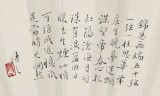 錦瑟無端五十弦
一弦一柱思華年
莊生曉夢迷蝴
蝶望帝春心托
杜鵑滄海月明
珠有淚藍田日
暖玉生煙此情
可待成追憶只
是當時已惘然